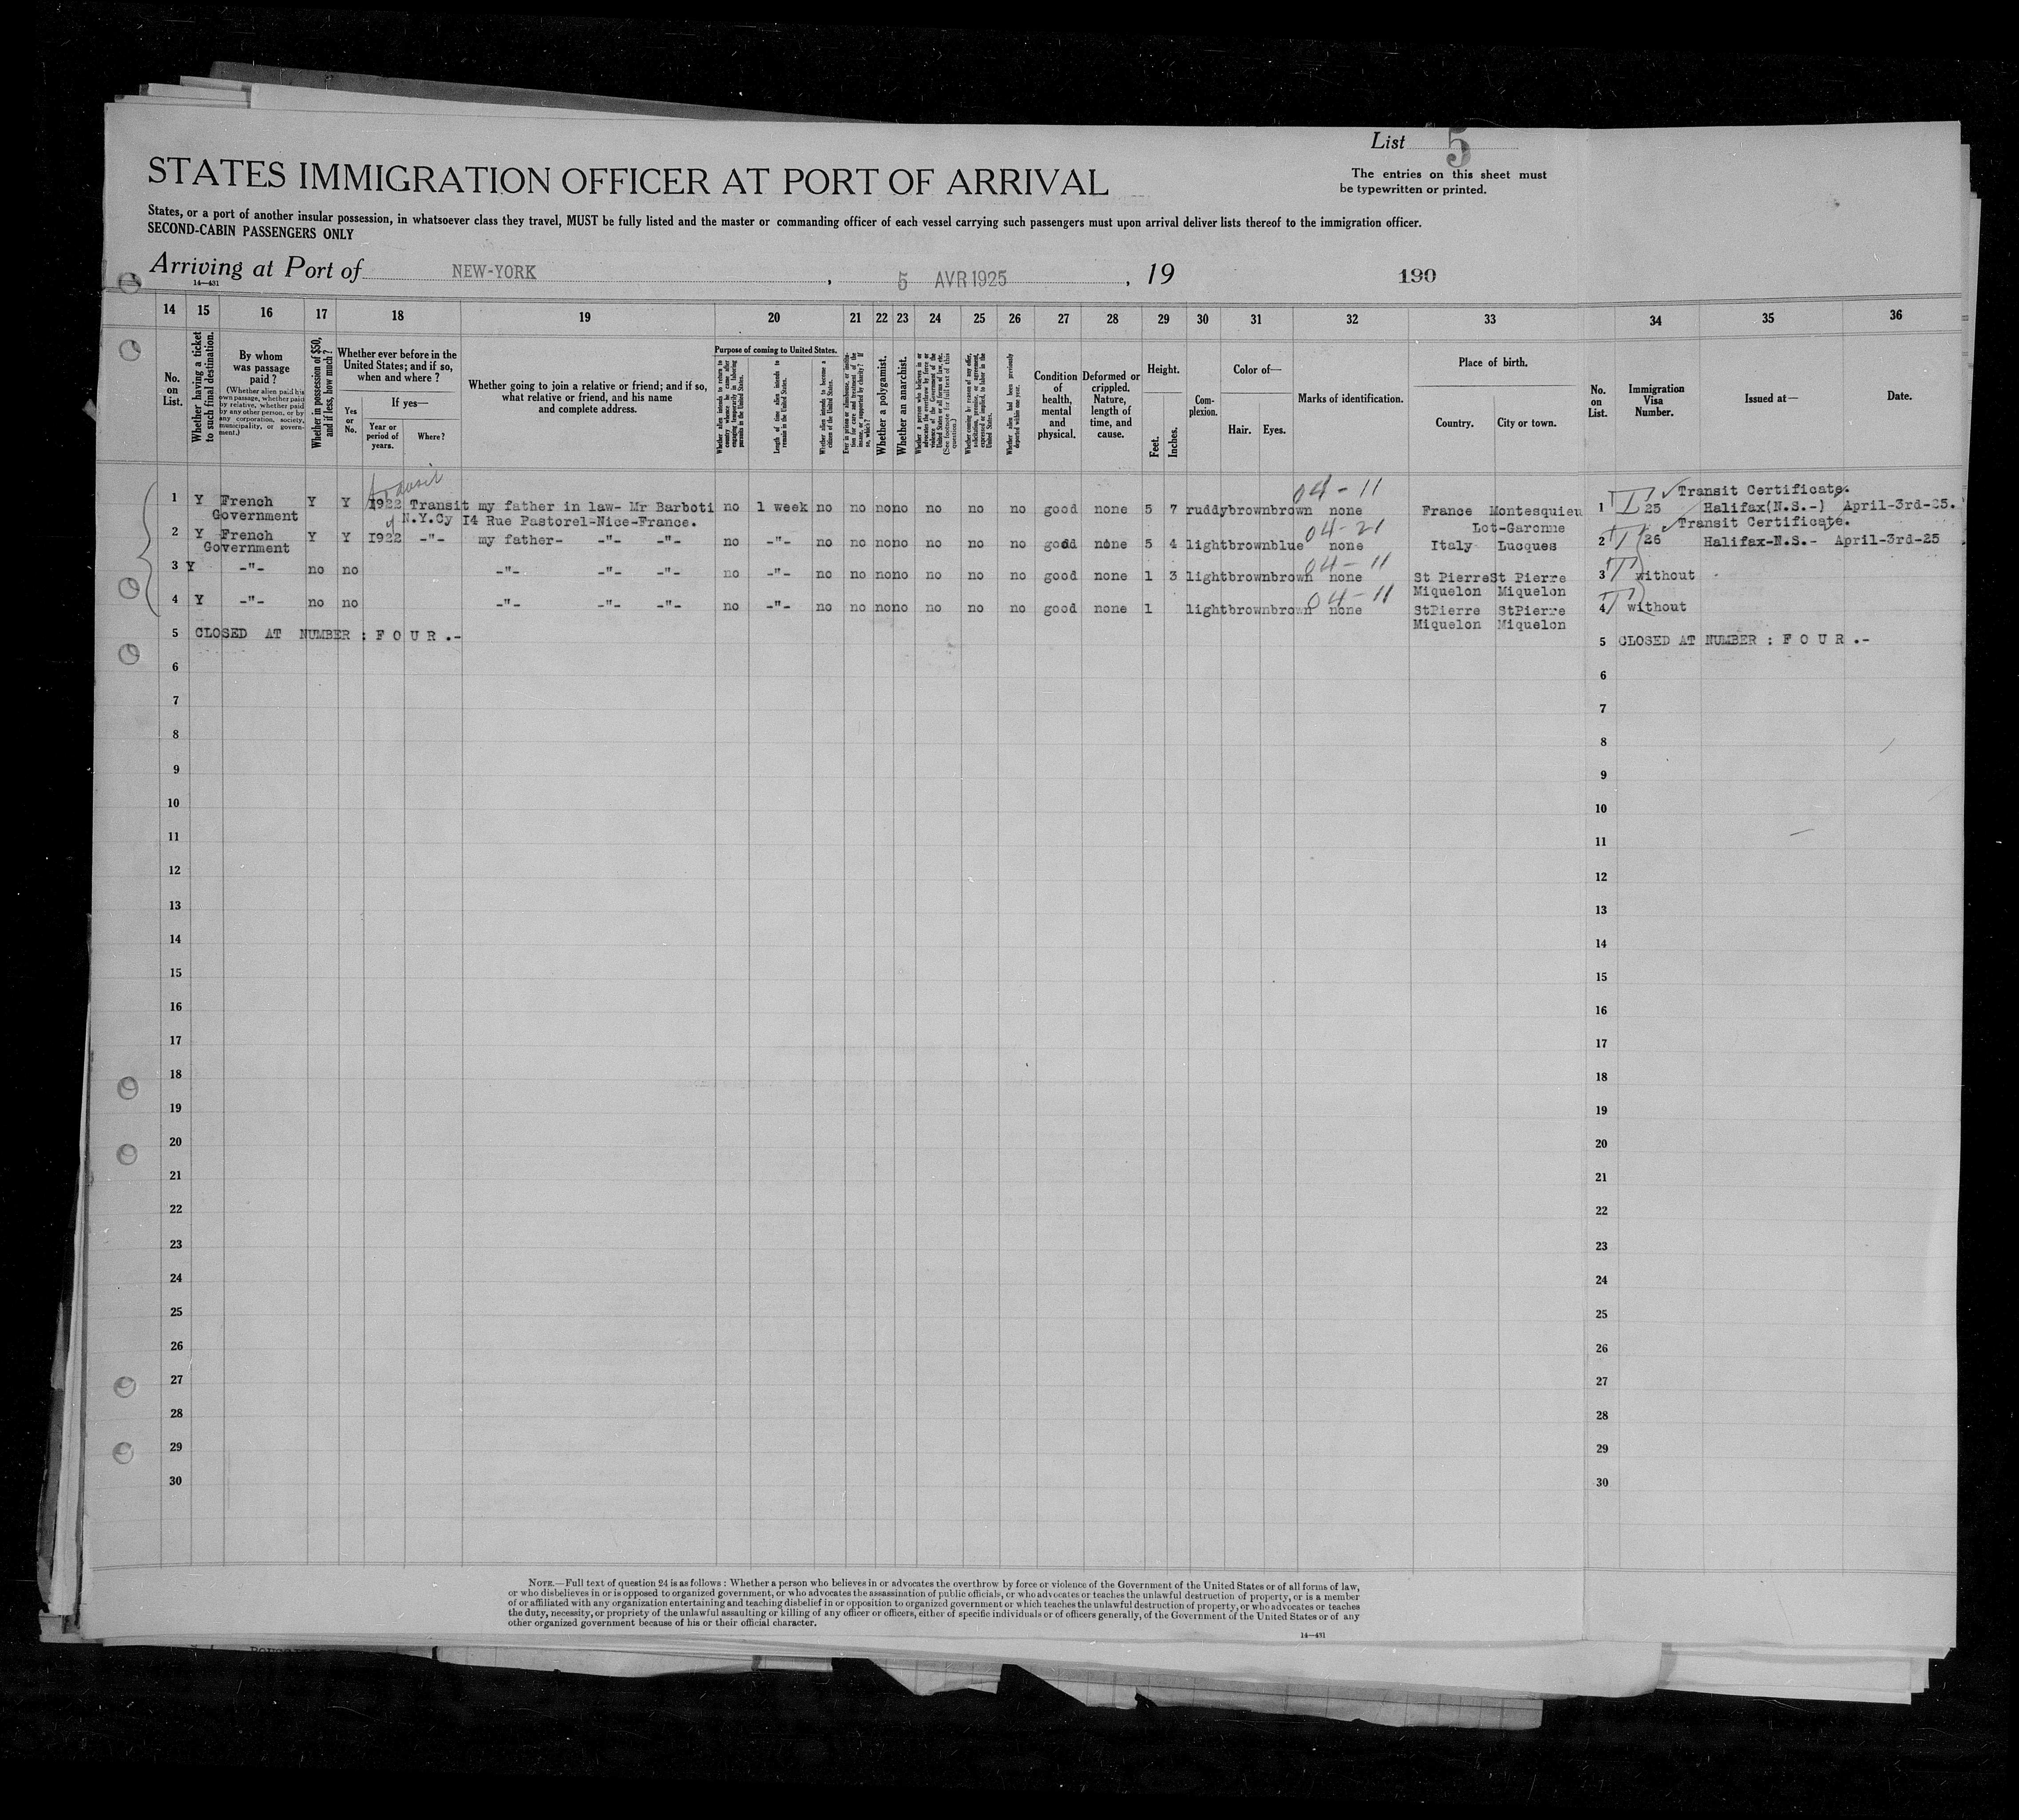 List 5
STATES IMMIGRATION OFFICER AT PORT OF ARRIVAL
The entries on this sheet must
be typewritten or printed.
States, or a port of another insular possession, in whatsoever class they travel, MUST be fully listed and the master or commanding officer of each vessel carrying such passengers must upon arrival deliver lists thereof to the immigration officer.
SECOND-CABIN PASSENGERS ONLY
Arriving at Port of NEW-YORK , 5 AVR 1925 , 19 190
14—431
14 15 16 17 18 19 20 21 22 23 24 25 26 27 28 29 30 31 32 33 34 35 36
No. on List.
Whether having a ticket to such final destination.
By whom was passage paid?
(Whether alien paid his own passage, whether paid by relative, whether paid by any other person, or by any corporation, society, municipality, or government.)
Whether in possession of $50, and if less, how much?
Whether ever before in the United States; and if so, when and where?
Yes or No.
If yes—
Year or period of years.
Where?
Whether going to join a relative or friend; and if so, what relative or friend, and his name and complete address.
Purpose of coming to United States.
Length of time alien intends to remain in the United States.
Whether alien intends to become a citizen of the United States.
Whether a polygamist.
Whether an anarchist.
Whether alien had been previously deported within one year.
Condition of health, mental and physical.
Deformed or crippled. Nature, length of time, and cause.
Height.
Feet.
Inches.
Complexion.
Color of—
Hair.
Eyes.
Marks of identification.
Place of birth.
Country.
City or town.
No. on List.
Immigration Visa Number.
Issued at—
Date.
transit
04-11
Transit Certificate.
1 Y French Y Y 1922 Transit my father in law- Mr Barboti no 1 week no no no no no no no good none 5 7 ruddy brown brown none France Montesquieu 1 25 Halifax(N.S.-) April-3rd-25.
Government N.Y.Cy 14 Rue Pastorel-Nice-France. Lot-Garonne
04-21
Transit Certificate.
2 Y French Y Y 1922 -"- my father- -"- -"- no -"- no no no no no no no good none 5 4 light brown blue none Italy Lucques 2 26 Halifax-N.S.- April-3rd-25
Government
04-11
3 Y -"- no no -"- -"- -"- no -"- no no no no no no no good none 1 3 light brown brown none St Pierre St Pierre 3 without
Miquelon Miquelon
04-11
4 Y -"- no no -"- -"- -"- no -"- no no no no no no no good none 1 light brown brown none StPierre StPierre 4 without
Miquelon Miquelon
5 CLOSED AT NUMBER : F O U R .- 5 CLOSED AT NUMBER : F O U R .-
6 6
7 7
8 8
9 9
10 10
11 11
12 12
13 13
14 14
15 15
16 16
17 17
18 18
19 19
20 20
21 21
22 22
23 23
24 24
25 25
26 26
27 27
28 28
29 29
30 30
NOTE.—Full text of question 24 is as follows: Whether a person who believes in or advocates the overthrow by force or violence of the Government of the United States or of all forms of law,
or who disbelieves in or is opposed to organized government, or who advocates the assassination of public officials, or who advocates or teaches the unlawful destruction of property, or is a member
of or affiliated with any organization entertaining and teaching disbelief in or opposition to organized government or which teaches the unlawful destruction of property, or who advocates or teaches
the duty, necessity, or propriety of the unlawful assaulting or killing of any officer or officers, either of specific individuals or of officers generally, of the Government of the United States or of any
other organized government because of his or their official character.
14—431